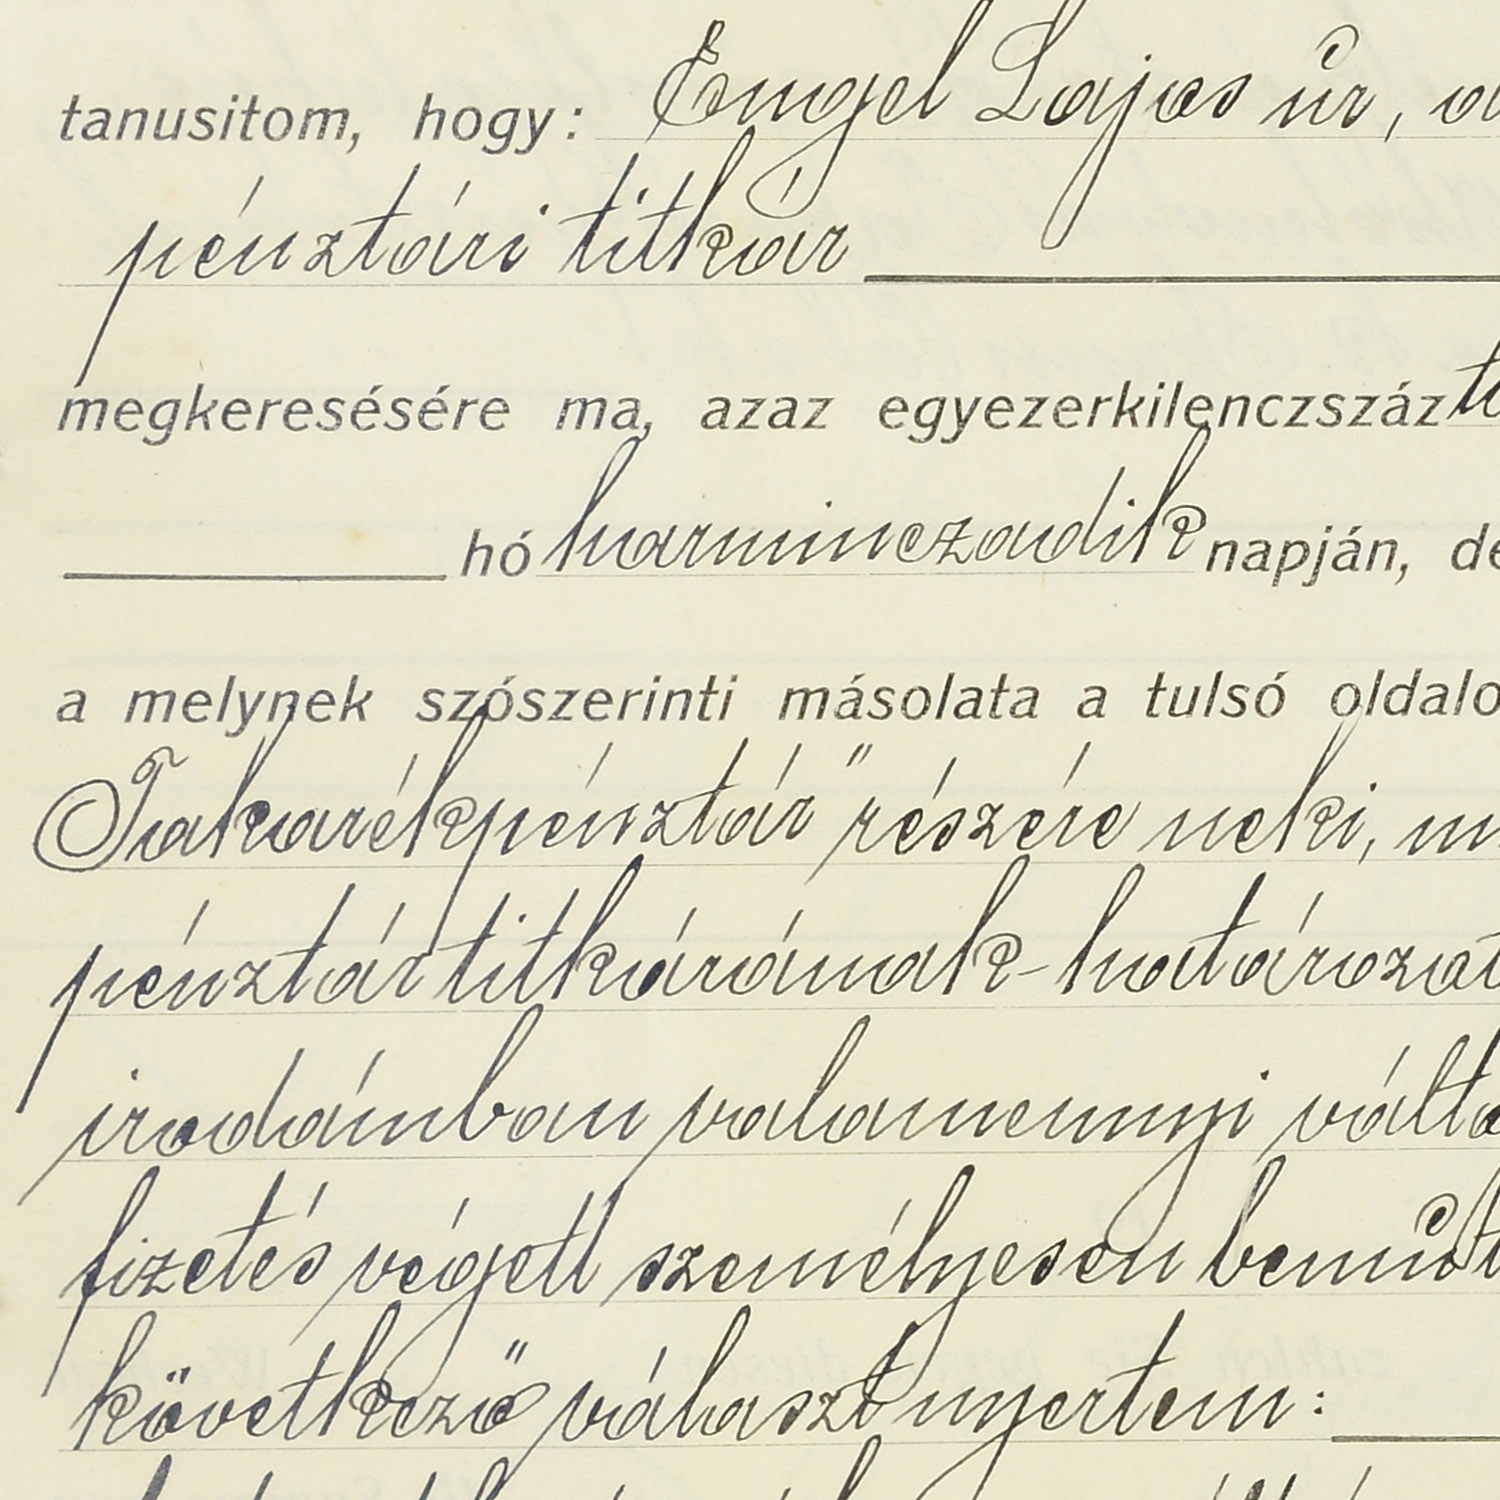 tanusitom, hogy: Engel Lajos úr,
pénztári titkár
megkeresésére ma, azaz egyezerkilenczszáz
hó harminczadik napján,
a melynek szószerinti másolata a tulsó oldalo
Takarékpénztár" részére neki,
pénztár titkárának - határozat
irodámban valamennyi váltó
fizetés végett személyesen bemut
következő választ nyertem: